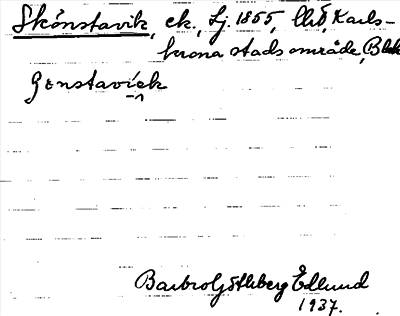 Skönstavik, ek, Lj. 1855, Karls-
krona stads område, Blek
Gönstavick
Barbro Göthberg Edlund
1937.